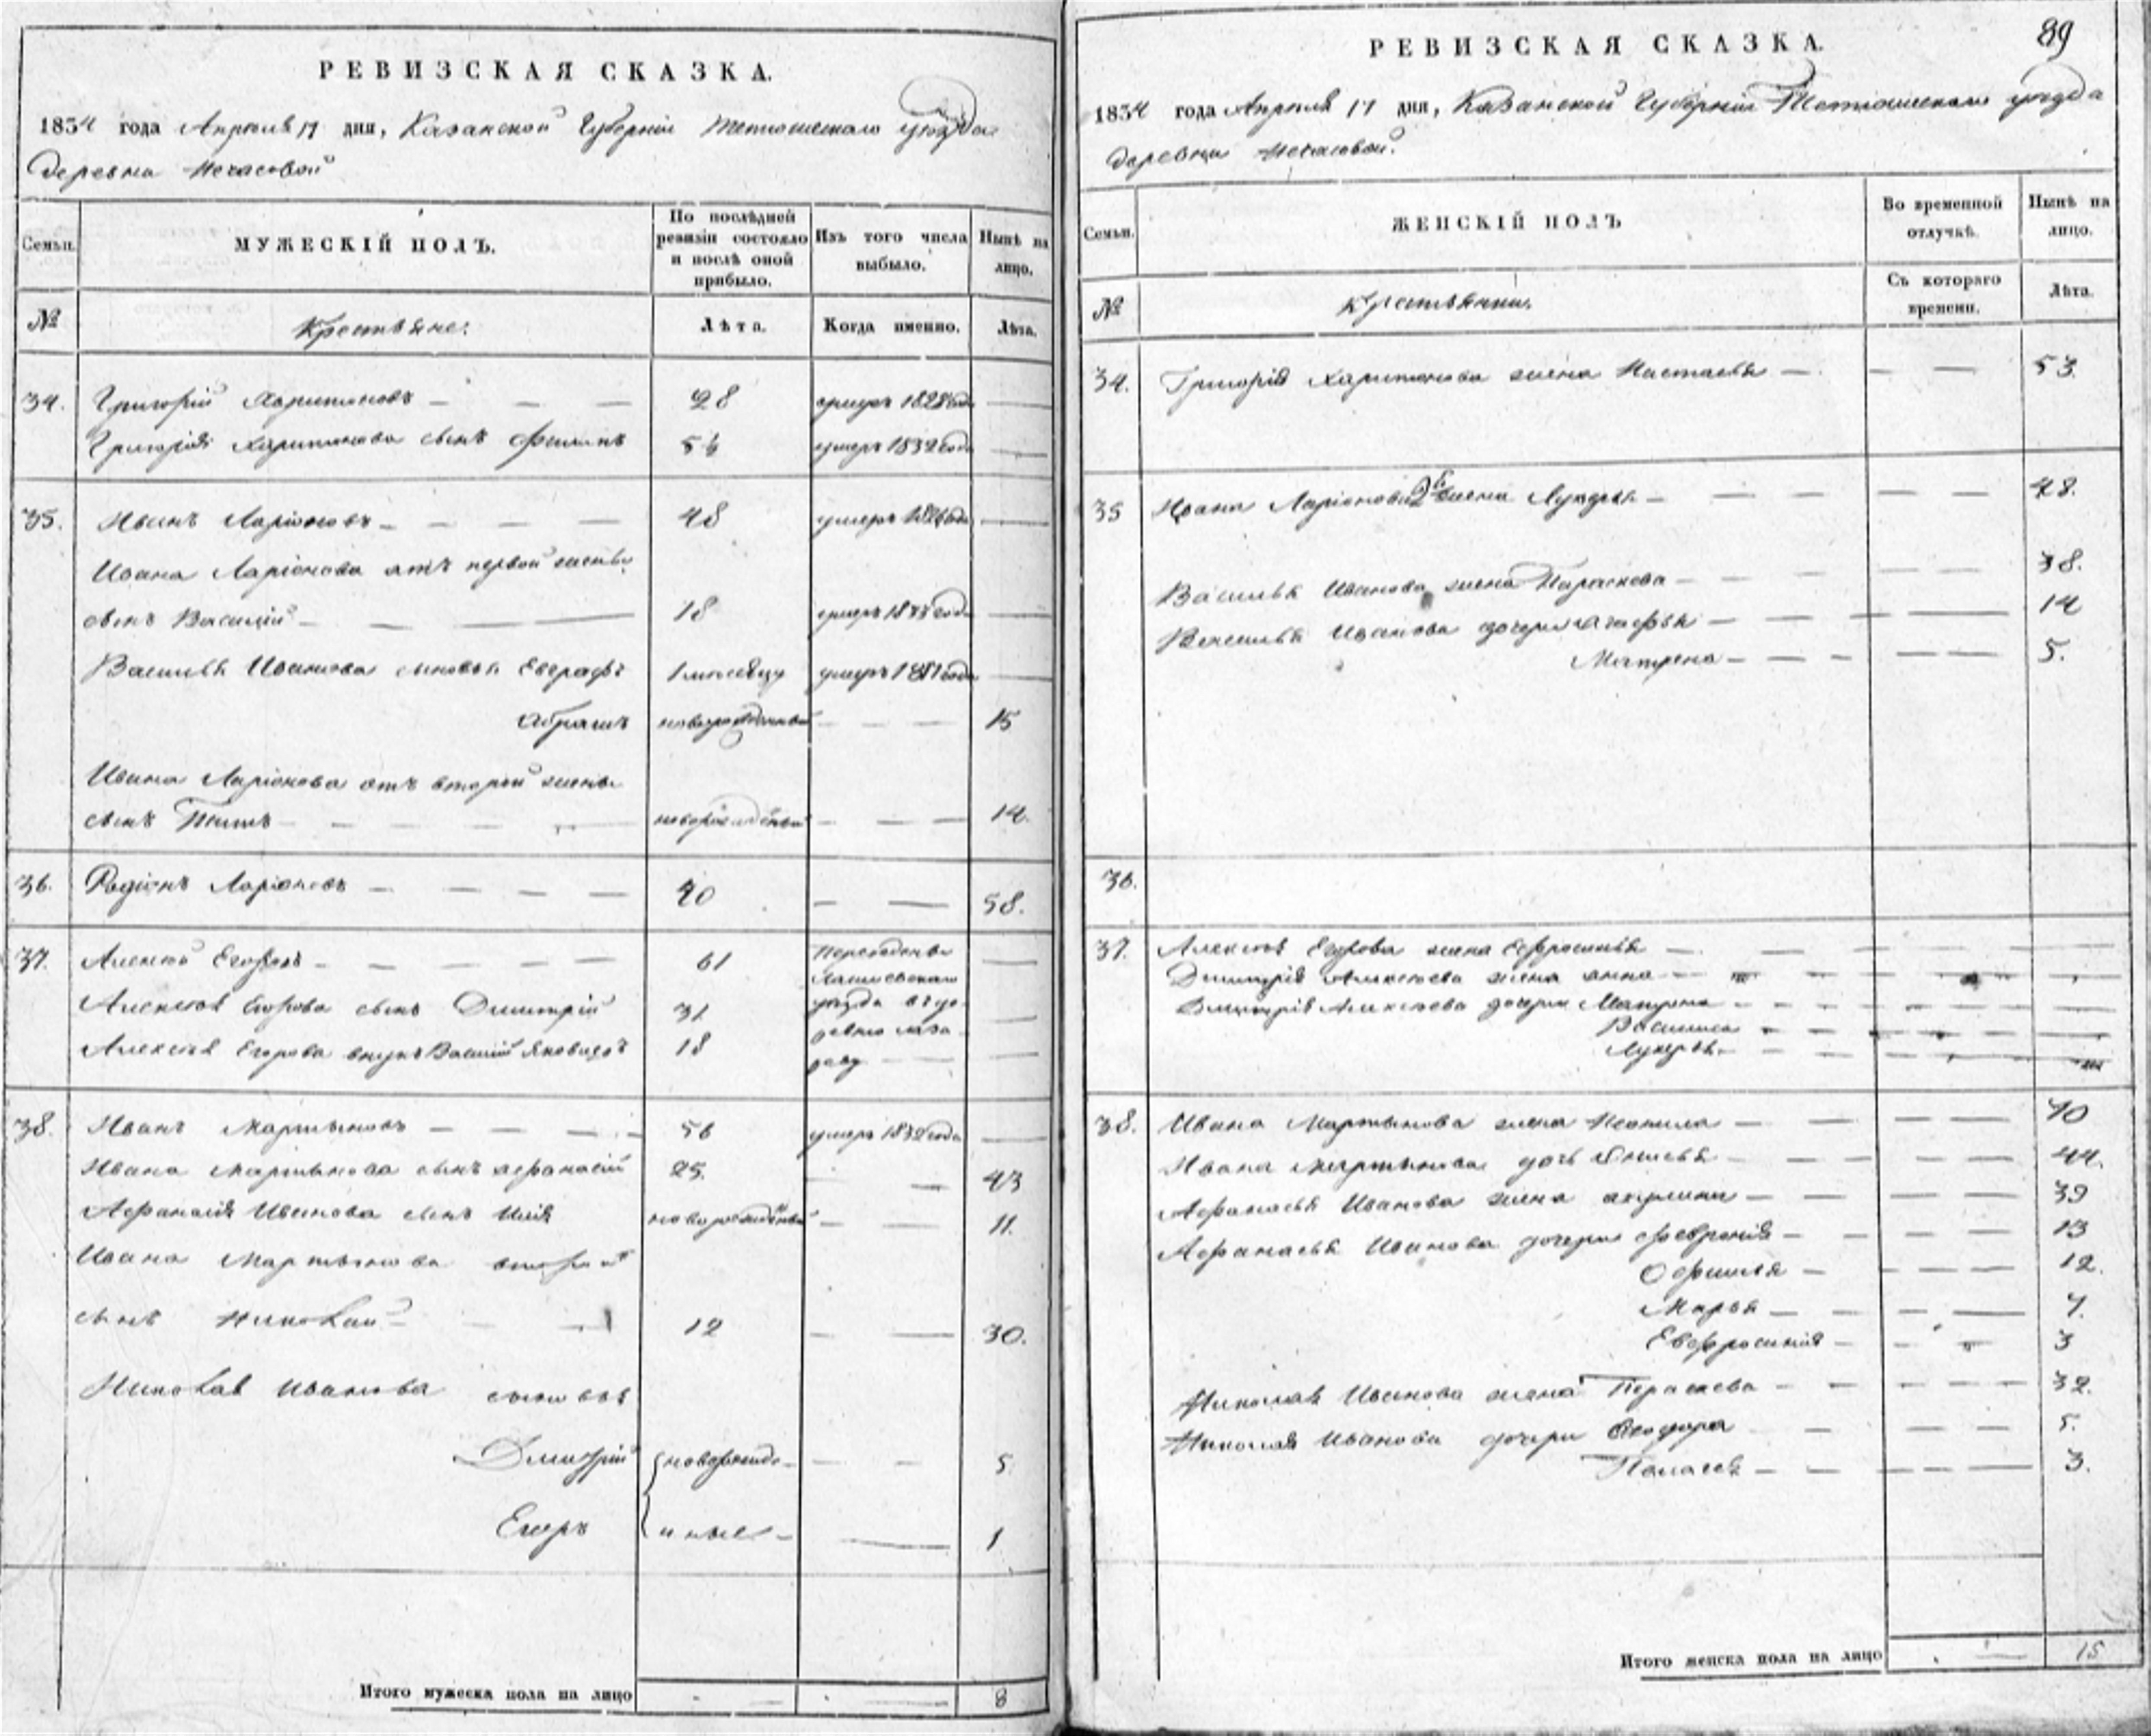 РЕВИЗСКАЯ СКАЗКА.
1834 года Апреля 17 дня, Казанской Губернiи Тетюшскаго уезда
деревни Нечасовой
Семьи.
МУЖЕСКIЙ ПОЛЪ.
По послѣдней ревизiи состояло и послѣ оной прибыло.
Изъ того числа выбыло.
Нынѣ на лицо.
№
Крестьяне.
Лѣта.
Когда именно.
Лѣта.
34. Григорiй Харитоновъ — — — 28 умеръ 1828 года —
Григорiя Харитонова сынъ Филипъ 5½ умеръ 1832 года —
35. Иванъ Ларiоновъ — — — — 48 умеръ года —
Ивана Ларiонова отъ первой жены
сынъ Василiй — — — 18 умеръ года —
Василья Иванова сыновья Евграфъ 1 месяцу умеръ года —
Абрамъ новорожденный — — — 15
Ивана Ларiонова отъ второй жены
сынъ Титъ — — — — новорожденный — — — 14.
36. Родiонъ Ларiоновъ — — — — 40 — — 58.
37. Алексей Егоровъ — — — — — 61 Переведены —
Алексея Егорова сынъ Димитрiй 31 уезда въ де- —
Алексея Егорова внукъ Василiй Яковлевъ 18 — —
38. Иванъ Мартыновъ — — — — 56 умеръ 1832 года —
Ивана Мартынова сынъ Афанасiй 25. — — 43
Афанасiя Иванова сынъ Илiя новорожденный — — — 11.
Ивана Мартынова второй
сынъ Николай — — — 12 — — 30.
Николая Иванова сыновья
Дмитрiй новорожде- — — — 5
Егоръ нные — — 1
Итого мужеска пола на лицо — — 8
89
РЕВИЗСКАЯ СКАЗКА.
1834 года Апреля 17 дня, Казанской Губернiи Тетюшскаго уезда
деревни Нечасовой.
Семьи.
ЖЕНСКIЙ ПОЛЪ
Во временной отлучкѣ.
Нынѣ на лицо.
№
Крестьянки.
Съ котораго времени.
Лѣта.
34. Григорiя Харитонова жена Настасья — — — 53.
35 Ивана Ларiонова 2я жена Лукерья — — — — — — 48.
Василья Иванова жена Параскева — — — — — 38.
Василья Иванова дочери Агафья — — — — 14
Матрена — — — — — 5.
36.
37. Алексея Егорова жена Ефросинья — — — — —
Димитрiя Алексеева жена Анна — — — — —
Димитрiя Алексеева дочери Матрена — — — — —
Василиса — — — — —
Лукерья — — — — —
38. Ивана Мартынова жена Неонила — — — — 70
Ивана Мартынова дочь — — — — — 44.
Афанасья Иванова жена Акулина — — — — — 39
Афанасья Иванова дочери Феврония — — — — — — 13
Офимья — — — — 12.
Марья — — — — 7.
Евфросинiя — — — 3
Николая Иванова жена Параскева — — — — — 32.
Николая Иванова дочери Феодора — — — — 5.
Палагея — — — — — 3.
Итого женска пола на лицо — 15